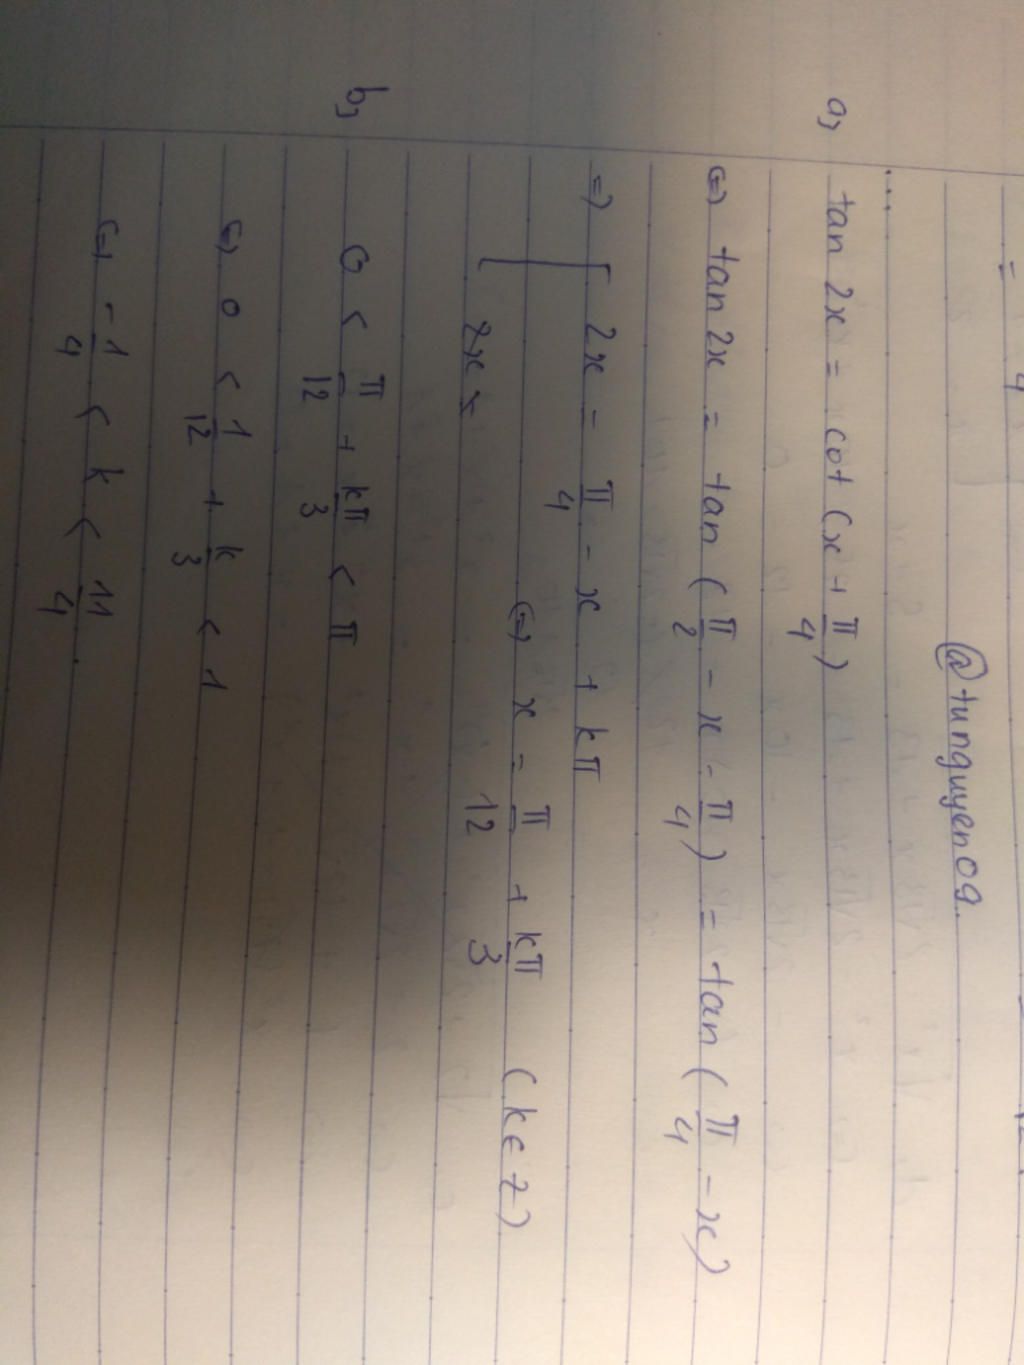 = 4
@tunguyen09.
...
a, tan 2x = cot (x + π/4)
(=) tan 2x = tan (π/2 - x - π/4) = tan (π/4 - x)
=) [ 2x = π/4 - x + kπ
(=) x = π/12 + kπ/3 (k ∈ Z)
2x =
b, 0 < π/12 + kπ/3 < π
(=) 0 < 1/12 + k/3 < 1
(=) -1/4 < k < 11/4.